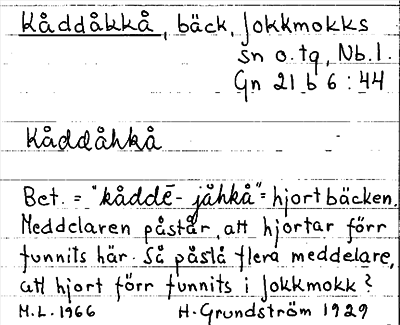 Kåddåkkå, bäck, Jokkmokks
sn o. tg, Nb.l.
Gn 21 b 6 : 44
Kåddåhkå
Bet. = "kåddē- jåhkå" = hjortbäcken.
Meddelaren påstår, att hjortar förr
funnits här. Så påstå flera meddelare,
att hjort förr funnits i Jokkmokk?
M.L. 1966 H. Grundström 1929